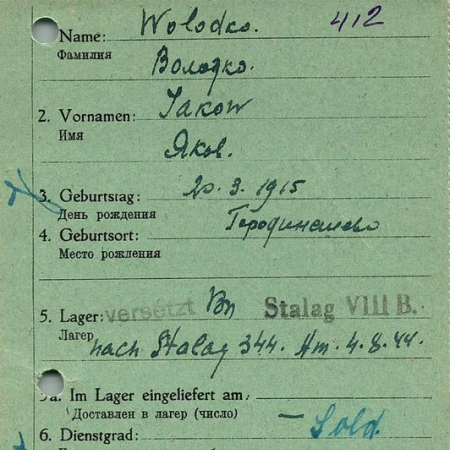 Name: Wolodko. 412
Фамилия Володко.
2. Vornamen: Jakow
Имя Яков.
3. Geburtstag: 20.3.1915
День рождения
4. Geburtsort:
Место рождения
5. Lager: versetzt Stalag VIII B.
Лагер nach Stalag 344. Am. 4.8.44.
5a. Im Lager eingeliefert am:
Доставлен в лагер (число)
6. Dienstgrad: – Sold.